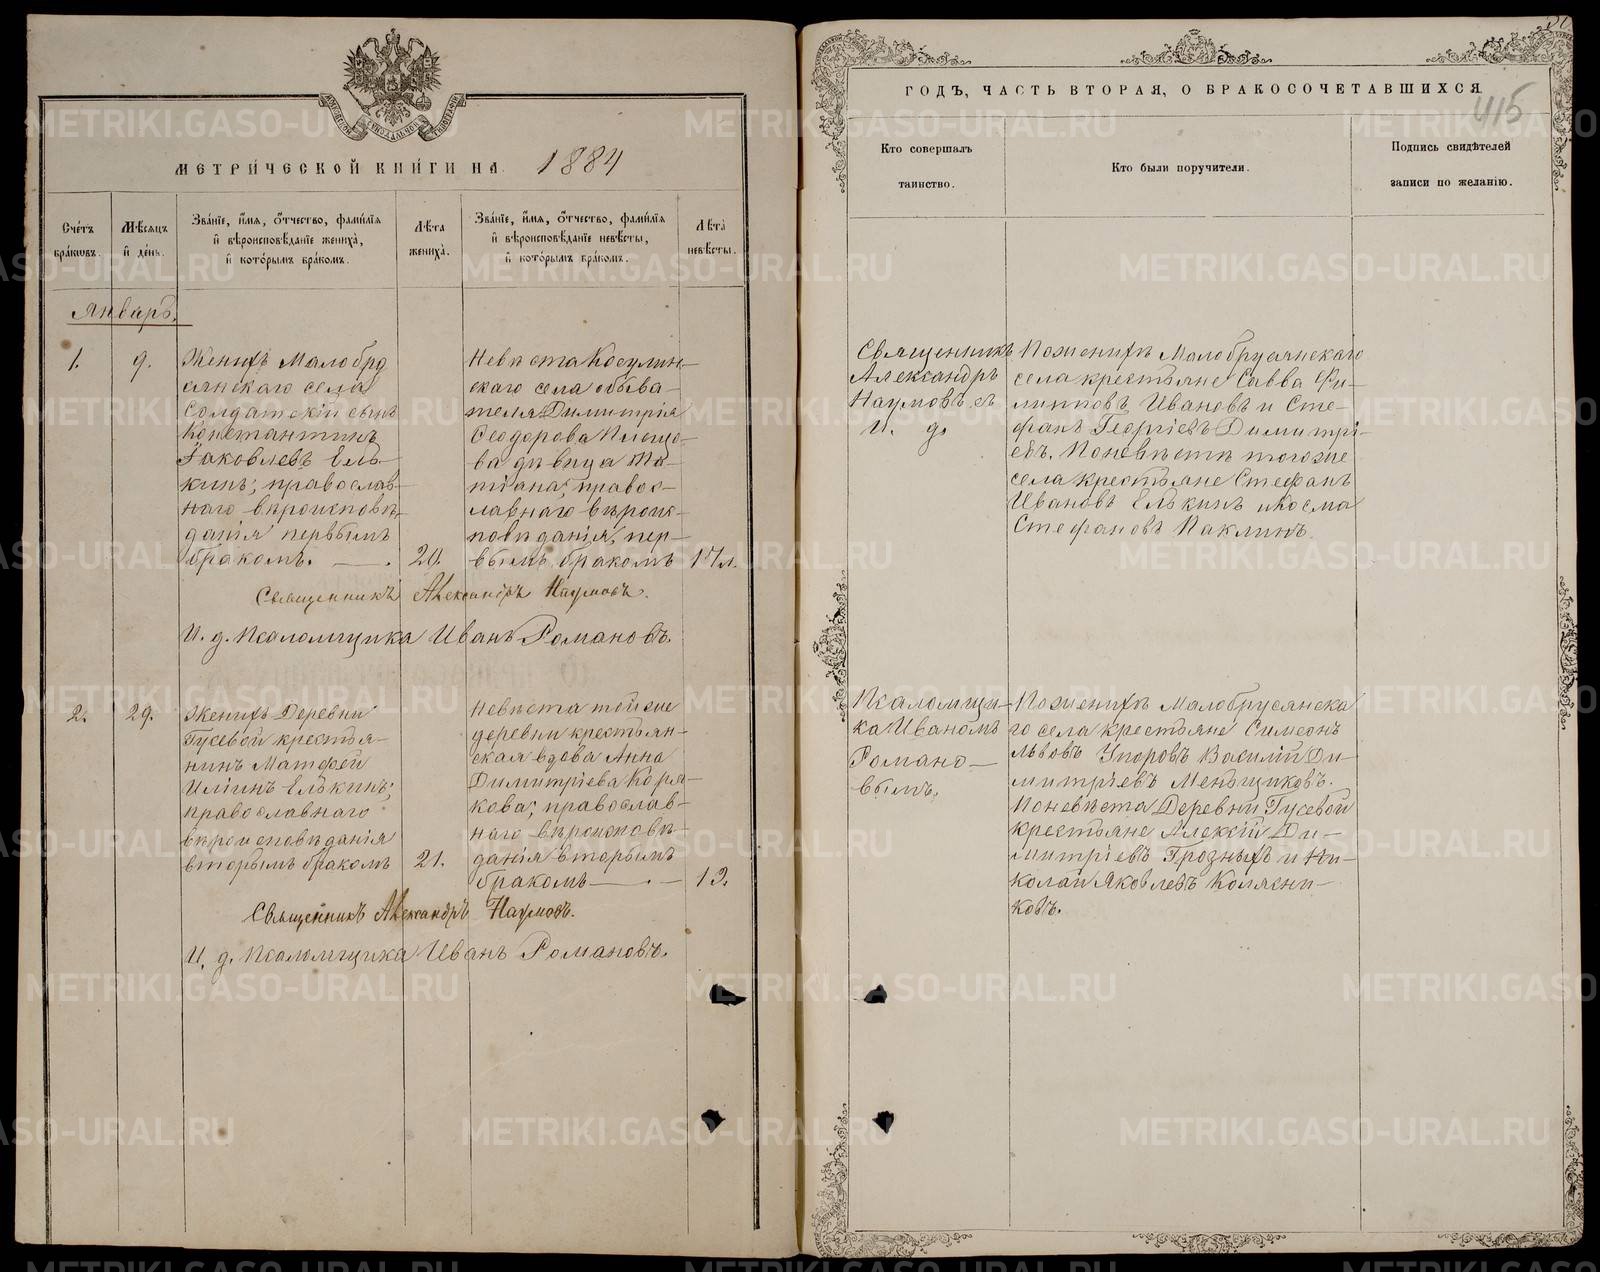 МЕТРИ́ЧЕСКОЙ КНИ́ГИ НА 1884
Сче́тъ бра́ковъ.
Мѣ́сяцъ и҆ де́нь.
Зва́нїе, и҆́мя, ѻ҆́тчество, фами́лїя
и҆ вѣроисповѣ́данїе жениха̀,
и҆ кото́рымъ бра́комъ.
Лѣ́та жениха̀.
Зва́нїе, и҆́мя, ѻ҆́тчество, фами́лїя
и҆ вѣроисповѣ́данїе невѣ́сты,
и҆ кото́рымъ бра́комъ.
Лѣ́та невѣ́сты.
Январь.
1.
9.
Женихъ Малобру
сянскаго села
Солдатскій сынъ
Константинъ
Іаковлевъ Ель-
кинъ; православ-
наго вѣроисповѣ-
данія первымъ
бракомъ.
20.
Невѣста Косулин-
скаго села обыва-
теля Димитрія
Ѳеодорова
дѣвица Та-
тіана; правос-
лавнаго вѣроис-
повѣданія, пер-
вымъ бракомъ
17 л.
Священникъ Александръ Наумовъ.
И. д. Псаломщика Иванъ Романовъ.
2.
29.
Женихъ Деревни
Гусевой крестья-
нинъ Матѳей
Иліинъ Елькинъ;
православнаго
вѣроисповѣданія
вторымъ бракомъ
21.
Невѣста тойже
деревни крестьян-
ская вдова Анна
Димитріева Коря-
кова; православ-
наго вѣроисповѣ-
данія вторымъ
бракомъ
19.
Священникъ Александръ Наумовъ.
И. д. Псаломщика Иванъ Романовъ.
415
ГОДЪ, ЧАСТЬ ВТОРАЯ, О БРАКОСОЧЕТАВШИХСЯ
Кто совершалъ
таинство.
Кто были поручители.
Подпись свидѣтелей
записи по желанію.
Священникъ
Александръ
Наумовъ съ
и. д.
По женихѣ Малобрусянскаго
села крестьяне Савва Фи-
липповъ Ивановъ и Сте-
фанъ Георгіевъ Димитрі-
евъ. По невѣстѣ тогоже
села крестьяне Стефанъ
Ивановъ Елькинъ и Косма
Стефановъ Паклинъ.
Псаломщи-
ка Иваномъ
Романо-
вымъ.
По женихѣ Малобрусянска
го села крестьяне Симеонъ
Львовъ Упоровъ Василій Ди-
митріевъ Меньщиковъ.
По невѣста Деревни Гусевой
крестьяне Алексій Ди-
митріевъ Грозныхъ и Ни-
колай Яковлевъ Колясни-
ковъ.
METRIKI.GASO-URAL.RU